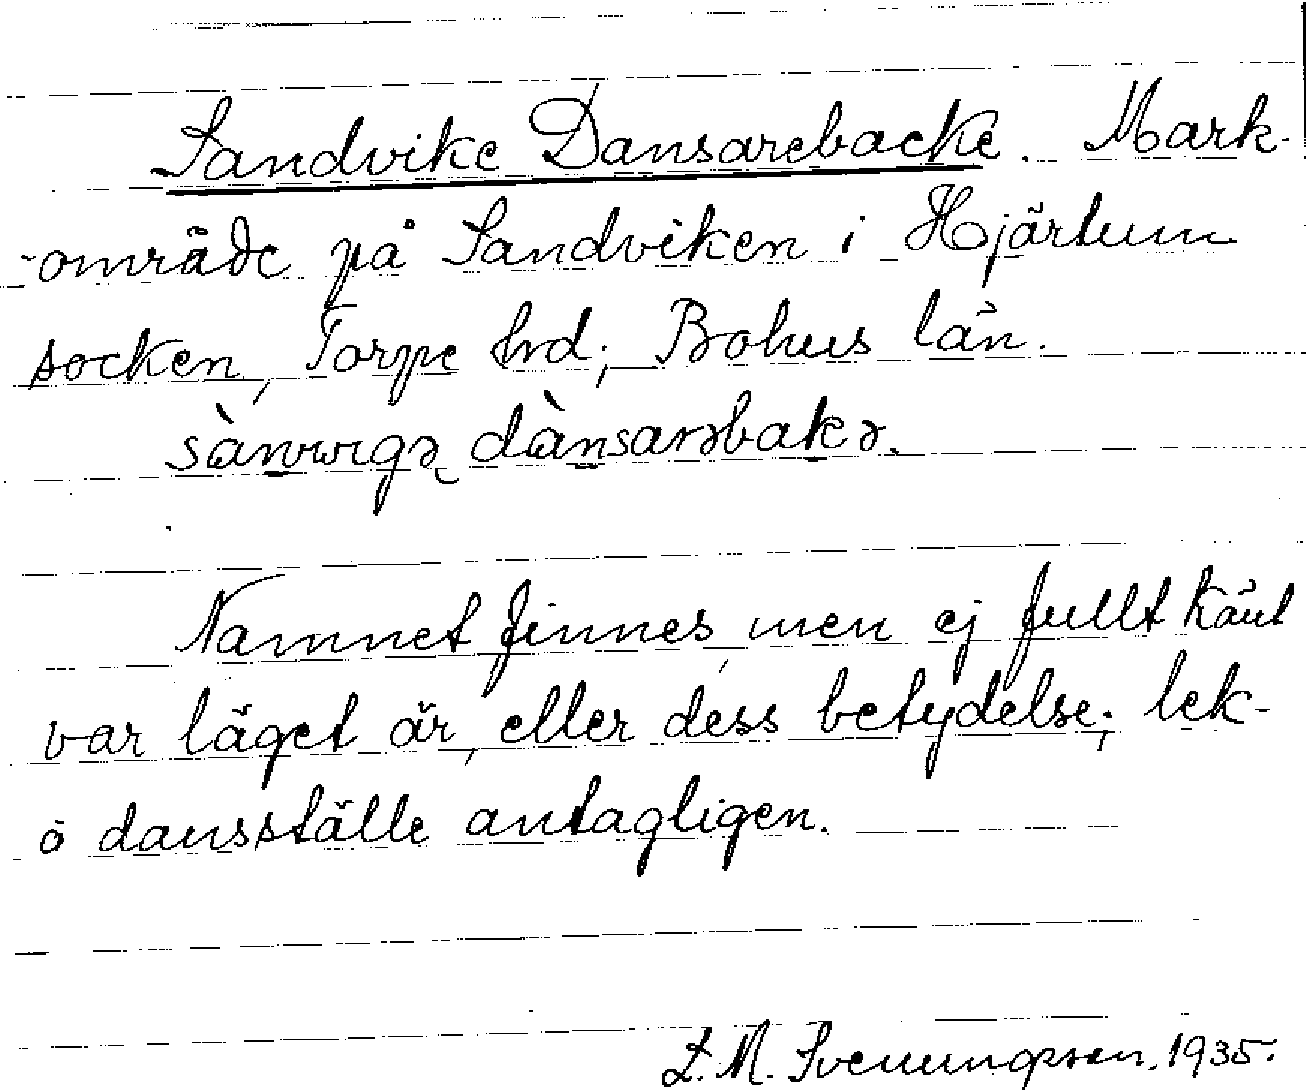 Sandvike Dansarebacke. Mark-
-område på Sandviken i Hjärtum
socken, Torpe hrd; Bohus län.
sànvıgə dànsarəbakə.
Namnet finnes, men ej fullt känt
var läget är, eller dess betydelse; lek-
o dansställe antagligen.
L. M. Svenungsson. 1935.